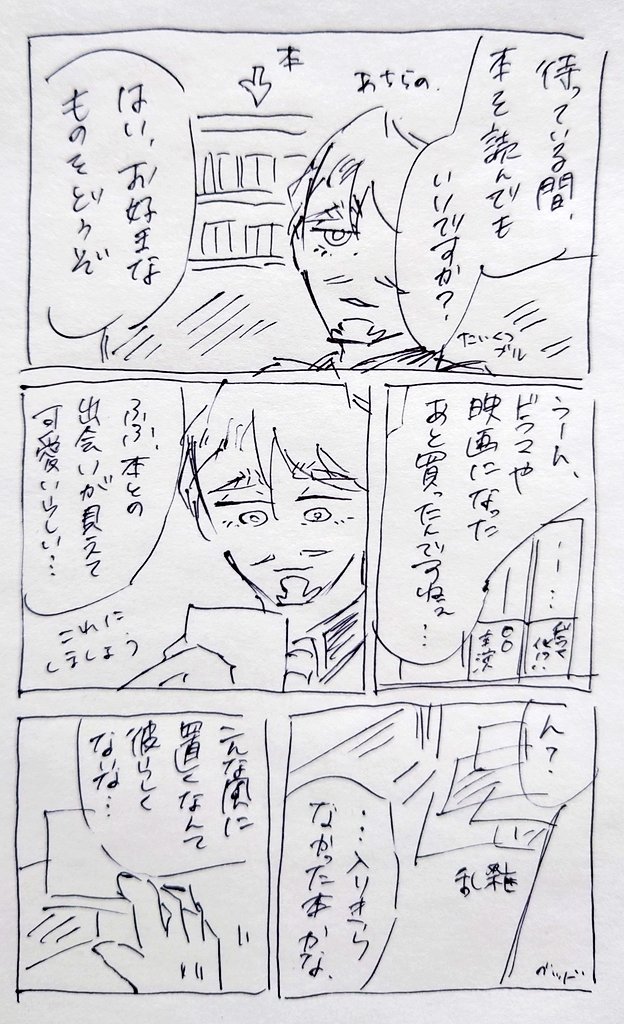 待っている間、
本を読んでも
いいですか?
あちらの
本
はい、お好きな
ものをどうぞ
たいくつ
ブル
うーん、
ドラマや
映画になった
あと買ったんですねぇ…
ドラマ
化!?
〇〇
主演
ふふ、本との
出会いが見えて
可愛いらしい…
これに
しましょう
ん?
乱雑
…入りきら
なかった本かな、
ベッド
こんな風に
置くなんて
彼らしく
ないな…